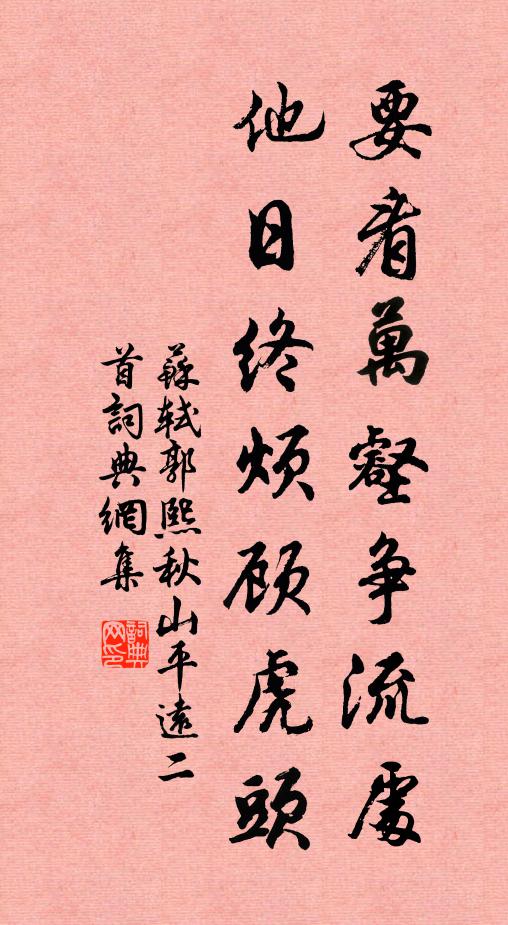 要看萬壑争流處
他日终烦顾虎頭
蘇軾郭熙秋山平遠二
首詞典網集
詞典
网印